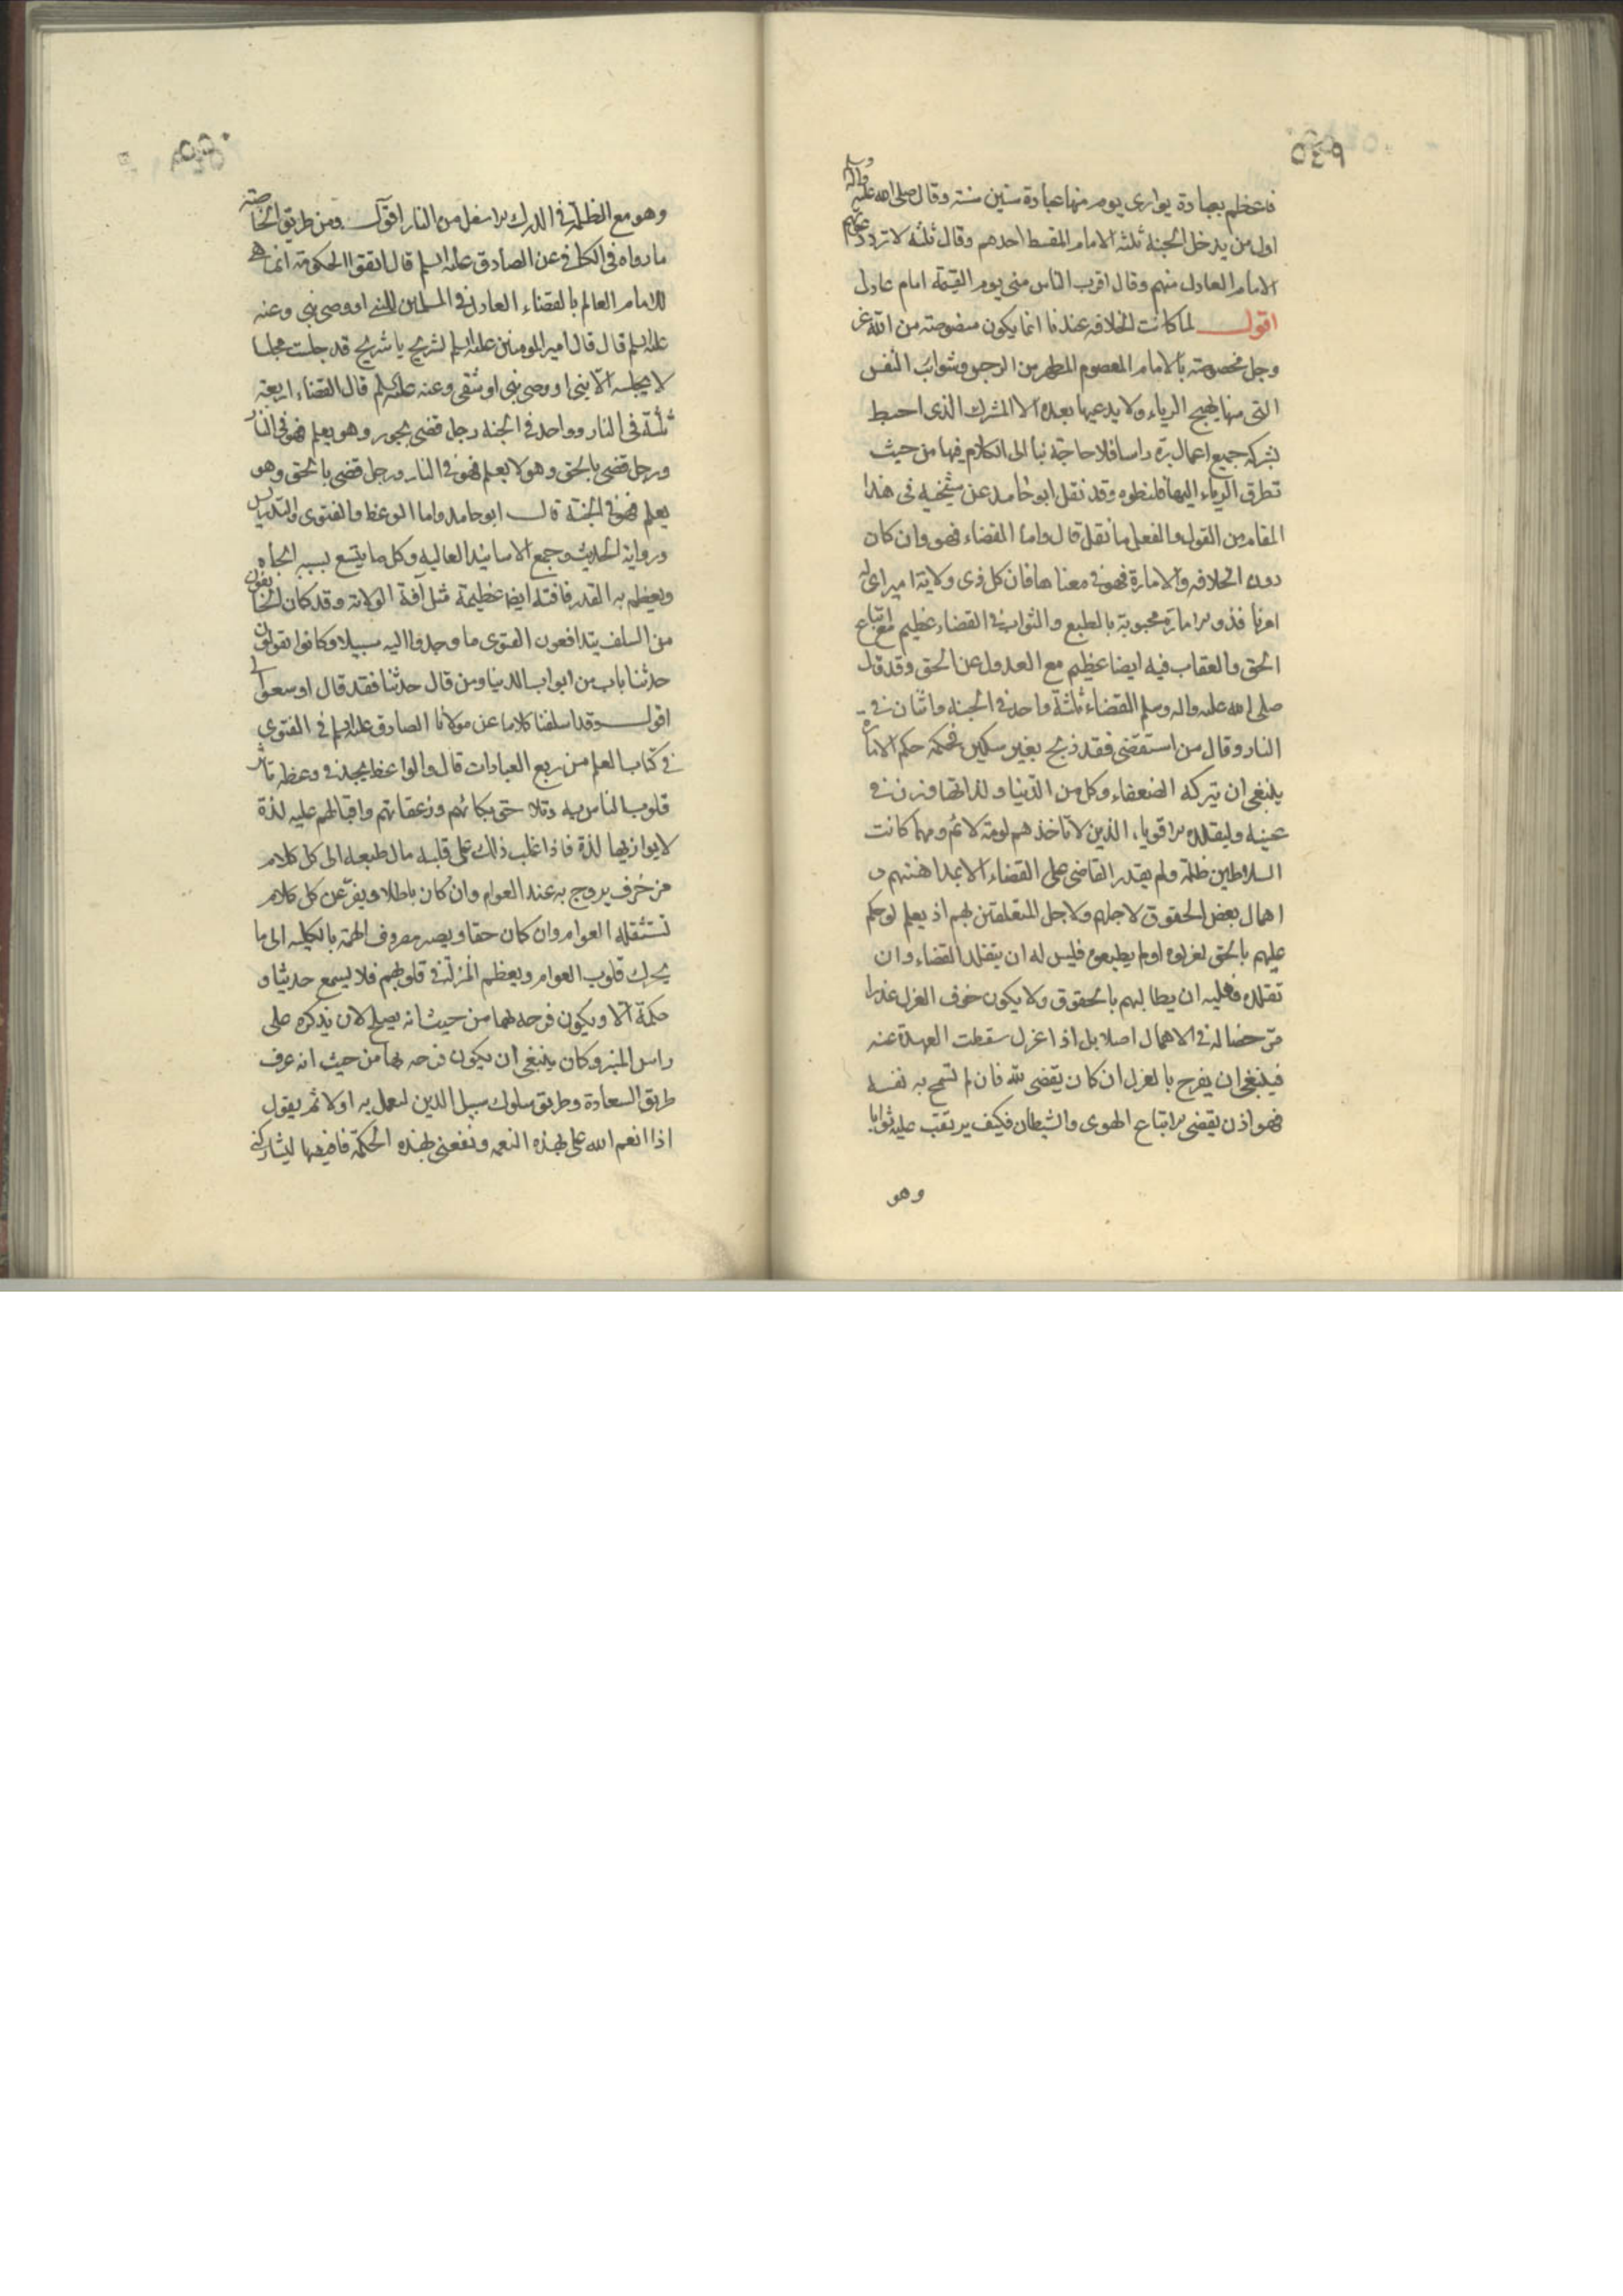 ٥٤٩
فاعظم بعبادة يوازى يوم منها عبادة ستين سنة وقال صلى الله عليه واله وسلم
اول من يدخل الجنة ثلثه الامام المقسط احدهم وقال ثلثه لا ترد دعوتهم
الامام العادل منهم وقال اقرب الناس منى يوم القيمة امام عادل
اقول لما كانت الخلافه عندنا انما يكون منصوصة من الله عز
وجل مخصوصة بالامام المعصوم المطهر من الرجس وشوائب النفس
التى منها يهيج الرياء ولا يدعيها بعده الا المشرك الذى احبط
بشركه جميع اعمال بره راسا فلا حاجة بنا الى الكلام فيها من حيث
تطرق الرياء اليها فلنطوه وقد نقل ابو حامد عن شيخيه فى هذا
المقام من القول والفعل ما نقل قال واما القضاء فهو وان كان
دون الخلافه والامارة فهو فى معناها فان كل ذى ولاية امير اى له
امر نافذ والامارة محبوبة بالطبع والثواب فى القضاء عظيم مع اتباع
الحق والعقاب فيه ايضا عظيم مع العدول عن الحق وقد قال
صلى الله عليه واله وسلم القضاء ثلثة واحد فى الجنه واثنان فى
النار وقال من استقضى فقد ذبح بغير سكين فحكمه حكم الامارة
ينبغى ان يتركه الضعفاء وكل من الدنيا ولذاتها وزن فى
عينه وليقلده الاقوياء الذين لا تاخذهم لومة لائم ومهما كانت
السلاطين ظلمة ولم يقدر القاضى على القضاء الا بمداهنتهم و
اهمال بعض الحقوق لاجلهم ولاجل المتعلقين بهم اذ يعلم لو حكم
عليهم بالحق لعزلوه او لم يطيعوه فليس له ان يتقلد القضاء وان
تقلده فعليه ان يطالبهم بالحقوق ولا يكون خوف العزل عذرا
مرخصا له فى الاهمال اصلا بل اذا عزل سقطت العهدة عنه
فينبغى ان يفرح بالعزل ان كان يقضى لله فان لم تسمح به نفسه
فهو اذن يقضى لاتباع الهوى والشيطان فكيف يرتقب عليه ثوابا
وهو
٥٥٠
وهو مع الظلمة فى الدرك الاسفل من النار اقول ومن طريق الخاصة
ما رواه فى الكافى عن الصادق عليه السلم قال اتقوا الحكومة انما هى
للامام العالم بالقضاء العادل فى المسلمين للنبى او وصى نبى وعنه
عليه السلم قال قال امير المومنين عليه السلم لشريح يا شريح قد جلست مجلسا
لا يجلسه الا نبى او وصى نبى او شقى وعنه عليه السلم قال القضاء اربعة
ثلثة فى النار وواحد فى الجنة رجل قضى بجور وهو يعلم فهو فى النار
ورجل قضى بالحق وهو لا يعلم فهو فى النار ورجل قضى بالحق وهو
يعلم فهو فى الجنة قال ابو حامد واما الوعظ والفتوى والتدريس
ورواية الحديث وجمع الاسانيد العاليه وكل ما يتسع بسببه الجاه
ويعظم به القدر فافته ايضا عظيمة مثل آفة الولاية وقد كان الخايفون
من السلف يتدافعون الفتوى ما وجدوا اليه سبيلا وكانوا يقولون
حدثنا باب من ابواب الدنيا ومن قال حدثنا فقد قال اوسعوا لى
اقول وقد اسلفنا كلاما عن مولانا الصادق عليه السلم فى الفتوى
فى كتاب العلم من ربع العبادات قال والواعظ يجد فى وعظه تاثر
قلوب الناس به وتلاحق بكائهم وزعقاتهم واقبالهم عليه لذة
لا يوازيها لذة فاذا غلب ذلك على قلبه مال طبعه الى كل كلام
مزخرف يروج به عند العوام وان كان باطلا ويفر عن كل كلام
تستثقله العوام وان كان حقا ويصير مصروف الهمة بالكليه الى ما
يحرك قلوب العوام ويعظم المنزلة فى قلوبهم فلا يسمع حديثا و
حكمة الا ويكون فرحه بهما من حيث انه يصلح لان يذكره على
راس المنبر وكان ينبغى ان يكون فرحه بهما من حيث انه عرف
طريق السعادة وطريق سلوك سبيل الدين ليعمل به اولا ثم يقول
اذا انعم الله على بهذه النعمه ونفعنى بهذه الحكمة فاقصها ليشاركنى